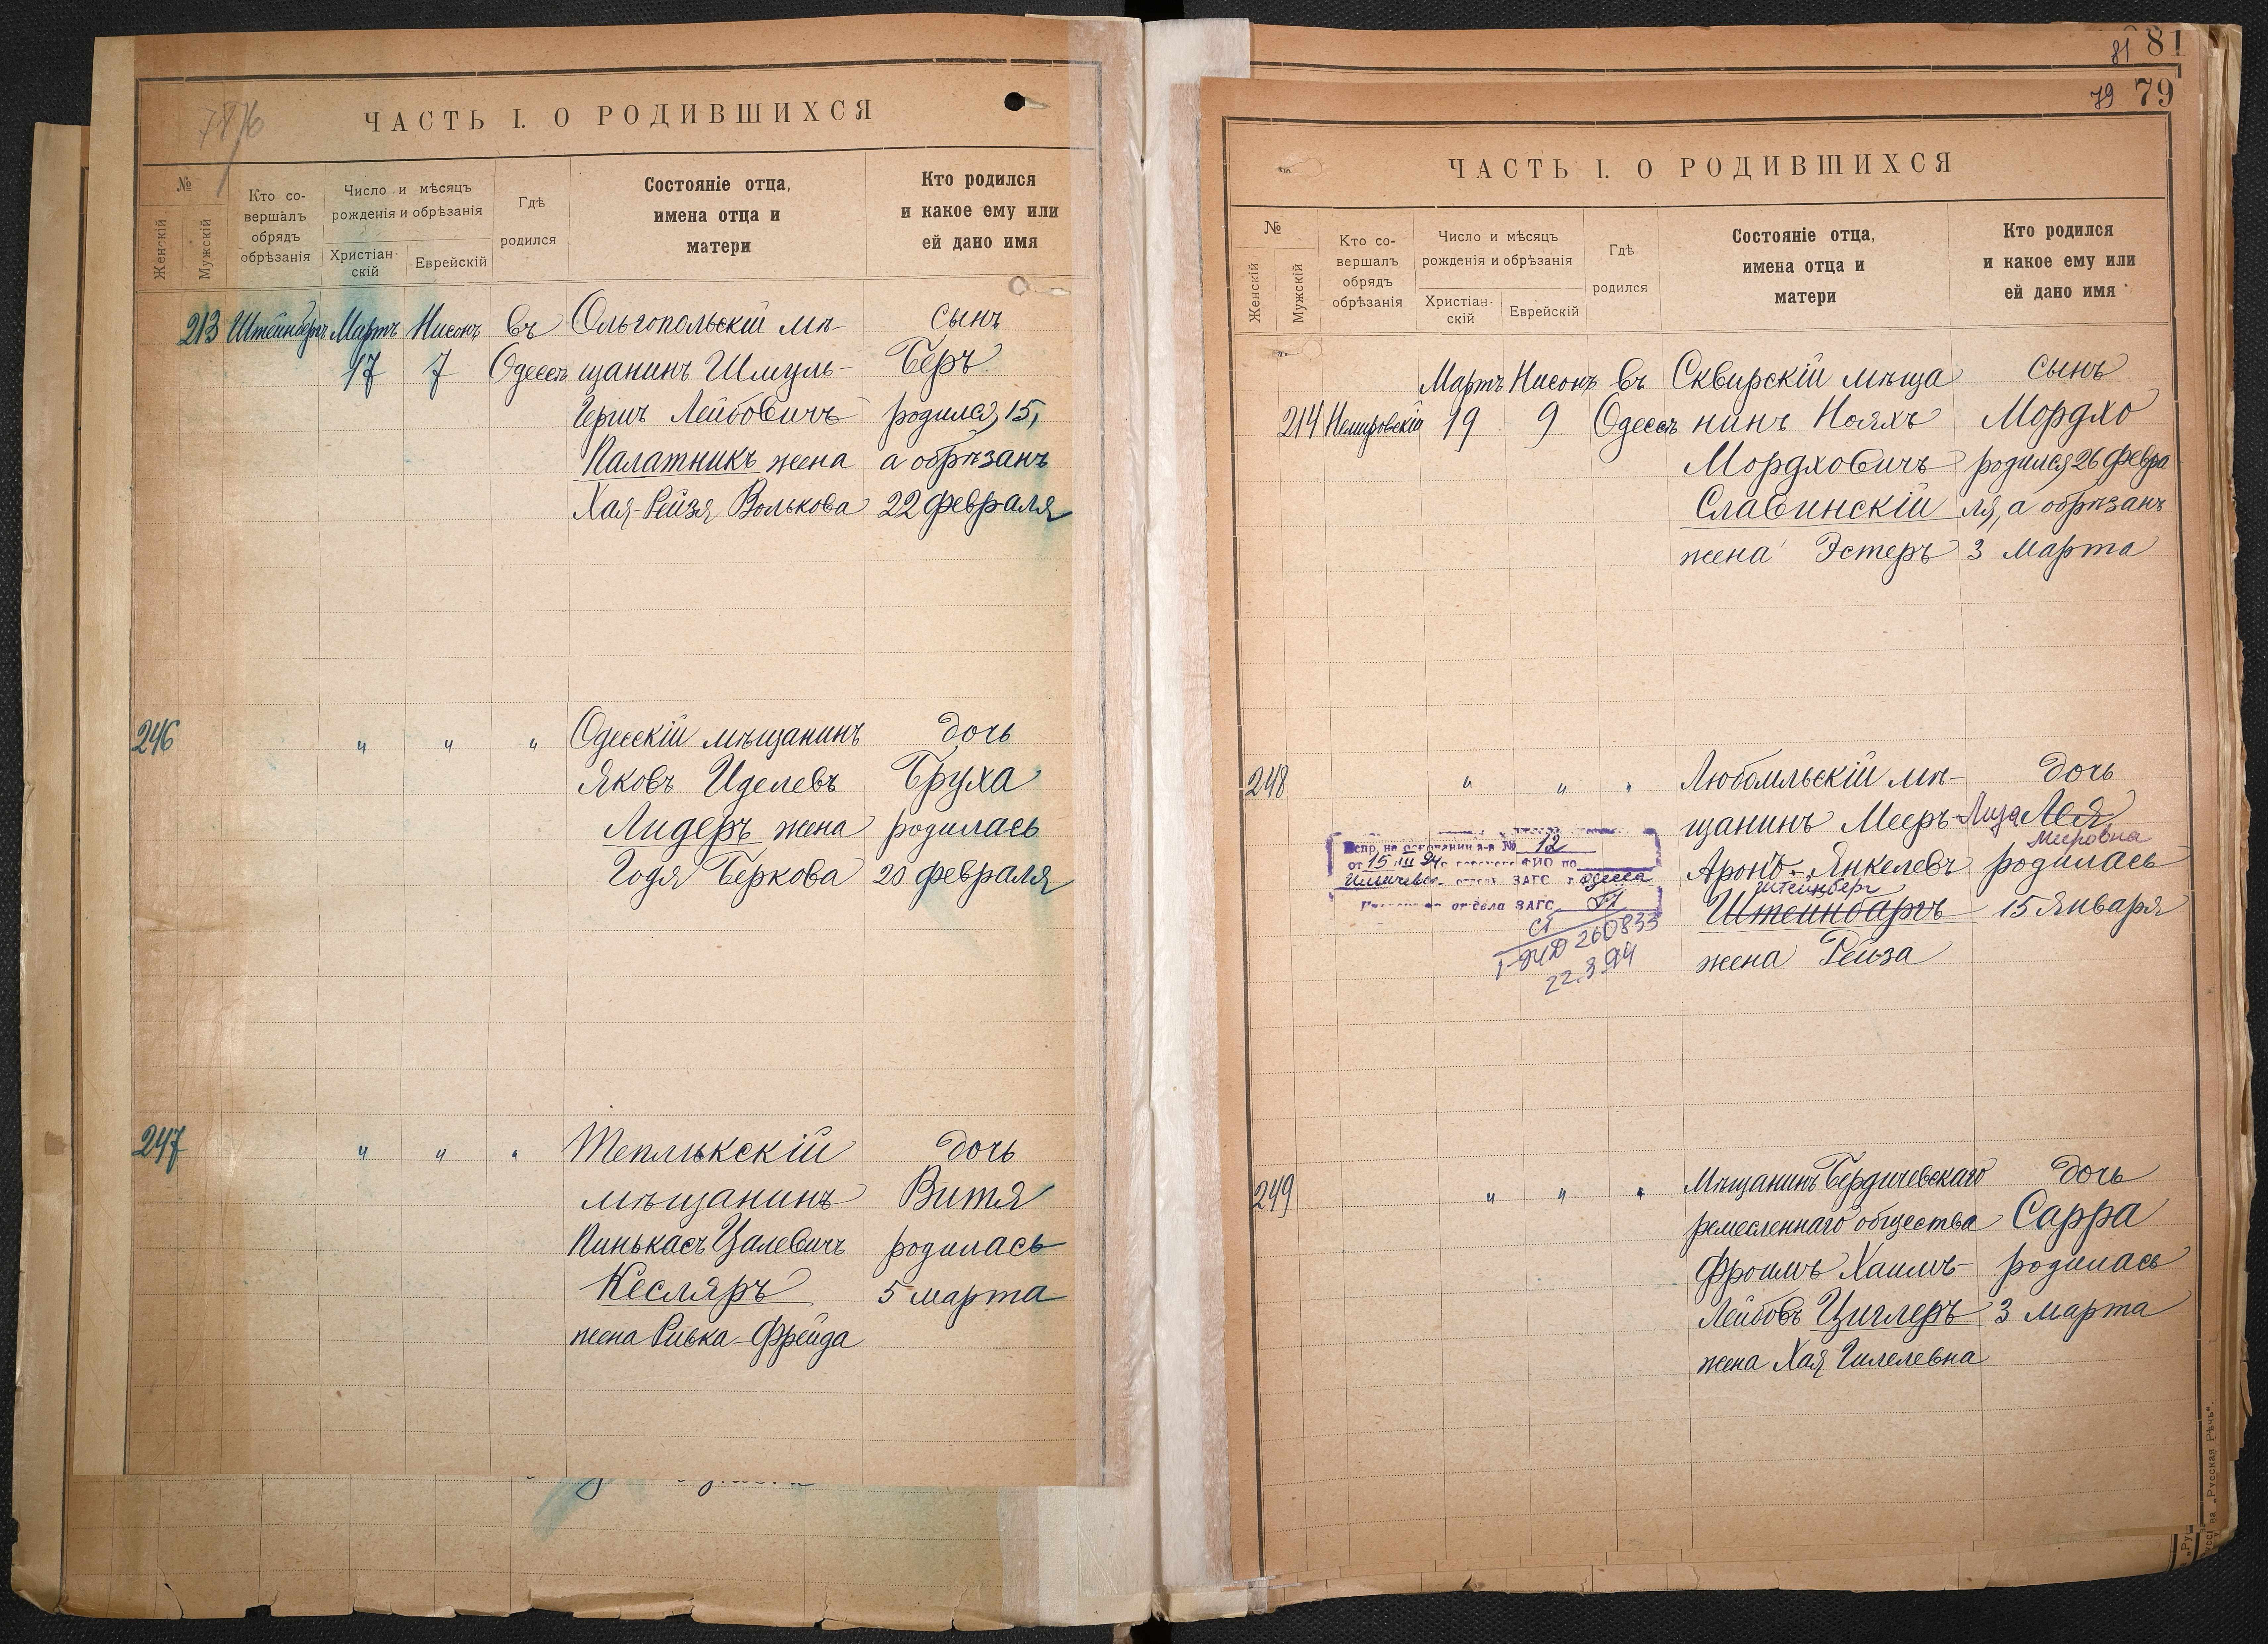 81 81
79 79
ЧАСТЬ I. О РОДИВШИХСЯ
№
Женскій
Мужскій
Кто со-
вершалъ
обрядъ
обрѣзанія
Число и мѣсяцъ
рожденія и обрѣзанія
Христіан-
скій
Еврейскій
Гдѣ
родился
Состояніе отца,
имена отца и
матери
Кто родился
и какое ему или
ей дано имя
213 Штейнбергъ Мартъ Нисонъ въ Ольгопольскій мѣ- сынъ
17 7 Одессѣ щанинъ Шмуль- Беръ
Гершъ Лейбовичъ родился 15,
Палатникъ жена а обрѣзанъ
Хая-Рейзя Волькова 22 февраля
246 " " " Одесскій мѣщанинъ дочь
Яковъ Иделевъ Бруха
Лидеръ жена родилась
Годя Беркова 20 февраля
247 " " " Теплыкскій дочь
мѣщанинъ Витя
Пинькасъ Цалевичъ родилась
Кесляръ 5 марта
жена Ривка-Фрейда
ЧАСТЬ I. О РОДИВШИХСЯ
№
Женскій
Мужскій
Кто со-
вершалъ
обрядъ
обрѣзанія
Число и мѣсяцъ
рожденія и обрѣзанія
Христіан-
скій
Еврейскій
Гдѣ
родился
Состояніе отца,
имена отца и
матери
Кто родился
и какое ему или
ей дано имя
Мартъ Нисонъ въ Сквирскій мѣща сынъ
214 Немировскій 19 9 Одессѣ нинъ Нояхъ Мордхо
Мордховичъ родился 26 февра
Славинскій ля, а обрѣзанъ
жена Эстеръ 3 Марта
248 " " " Любомльскій мѣ- дочь
щанинъ Мееръ- Лиза Лея
Мееровна
Аронъ-Янкелевъ родилась
Штейнберг
Штейнбаргъ 15 Января
жена Рейза
Испр. на основании а-з № 12
от 15 III 94 ФИО по
Ильичевск. отдел ЗАГС г. Одесса
отдела ЗАГС
260833
22.3.94
249 " " " Мѣщанинъ Бердичевскаго дочь
ремесленнаго общества Сарра
Фроимъ Хаимъ- родилась
Лейбовъ Циглеръ 3 марта
жена Хая Гилелевна
„Русская Рѣчь".